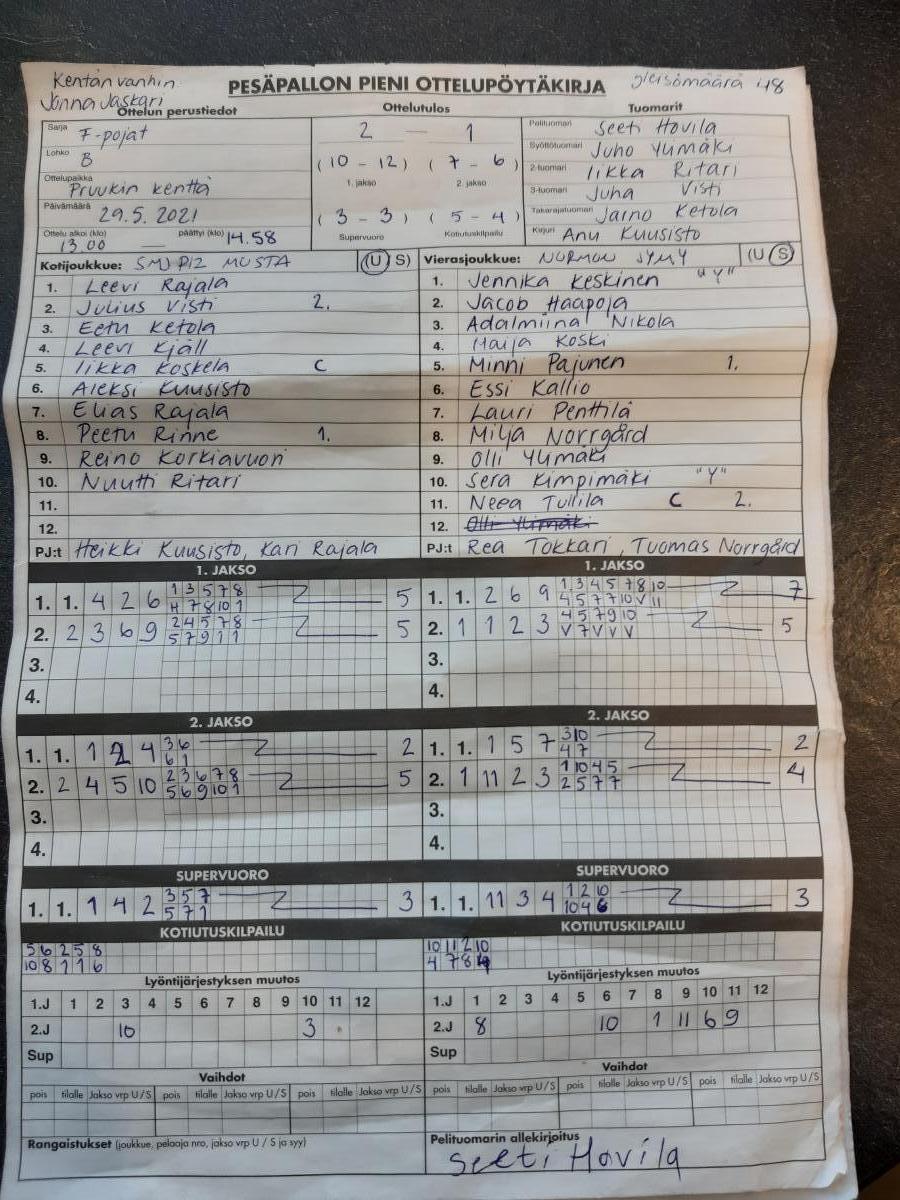 Kentän vanhin
Jonna Jaskari
PESÄPALLON PIENI OTTELUPÖYTÄKIRJA
yleisömäärä 48
Ottelun perustiedot
Ottelutulos
Tuomarit
Sarja F-pojat
Lohko B
Ottelupaikka Pruukin kenttä
Päivämäärä 29.5.2021
Ottelu alkoi (klo) 13.00 — päättyi (klo) 14.58
2 — 1
(10 - 12) (7 - 6)
1. jakso 2. jakso
(3 - 3) (5 - 4)
Supervuoro Kotiutuskilpailu
Pelituomari Seeti Hovila
Syöttötuomari Juho Ylimäki
2-tuomari Iikka Ritari
3-tuomari Juha Visti
Takarajatuomari Jarno Ketola
Kirjuri Anu Kuusisto
Kotijoukkue: SMJ P12 MUSTA (U S)
1. Leevi Rajala
2. Julius Visti 2.
3. Eetu Ketola
4. Leevi Kjäll
5. Iikka Koskela C
6. Aleksi Kuusisto
7. Elias Rajala
8. Peetu Rinne 1.
9. Reino Korkiavuori
10. Nuutti Ritari
11.
12.
PJ:t Heikki Kuusisto, Kari Rajala
Vierasjoukkue: NURMON JYMY (U S)
1. Jennika Keskinen "Y"
2. Jacob Haapoja
3. Adalmiina Nikola
4. Maija Koski
5. Minni Pajunen 1.
6. Essi Kallio
7. Lauri Penttilä
8. Milja Norrgård
9. Olli Ylimäki
10. Sera Kimpimäki "Y"
11. Neea Tullila C 2.
12. Olli Ylimäki
PJ:t Rea Tokkari, Tuomas Norrgård
1. JAKSO
1. 1. 4 2 6 1 3 5 7 8 5
4 7 8 10 1
2. 2 3 6 9 2 4 5 7 8 5
5 7 9 1 1
3.
4.
1. JAKSO
1. 1. 2 6 9 1 3 4 5 7 8 10 7
4 5 7 7 10 V 11
2. 1 1 2 3 4 5 7 9 10 5
V 7 V V V
3.
4.
2. JAKSO
1. 1. 1 2 4 3 6 2
6 1
2. 2 4 5 10 2 3 6 7 8 5
5 6 9 10 1
3.
4.
2. JAKSO
1. 1. 1 5 7 3 10 2
4 7
2. 1 11 2 3 1 10 4 5 4
2 5 7 7
3.
4.
SUPERVUORO
1. 1. 1 4 2 3 5 7 3
5 7 1
SUPERVUORO
1. 1. 11 3 4 1 2 10 3
10 4 6
KOTIUTUSKILPAILU
5 6 2 5 8
10 8 1 1 6
KOTIUTUSKILPAILU
10 11 2 10
4 7 8
Lyöntijärjestyksen muutos
1.J 1 2 3 4 5 6 7 8 9 10 11 12
2.J 10 3
Sup
Lyöntijärjestyksen muutos
1.J 1 2 3 4 5 6 7 8 9 10 11 12
2.J 8 10 1 11 6 9
Sup
Vaihdot
pois tilalle Jakso vrp U / S pois tilalle Jakso vrp U / S pois tilalle Jakso vrp U / S
Vaihdot
pois tilalle Jakso vrp U / S pois tilalle Jakso vrp U / S pois tilalle Jakso vrp U / S
Rangaistukset (joukkue, pelaaja nro, jakso vrp U / S ja syy)
Pelituomarin allekirjoitus
Seeti Hovila